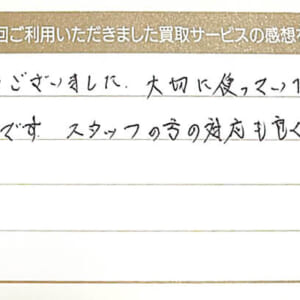 回ご利用いただきました買取サービスの感想を
ございました。大切に使って
です。スタッフの方の対応も良く